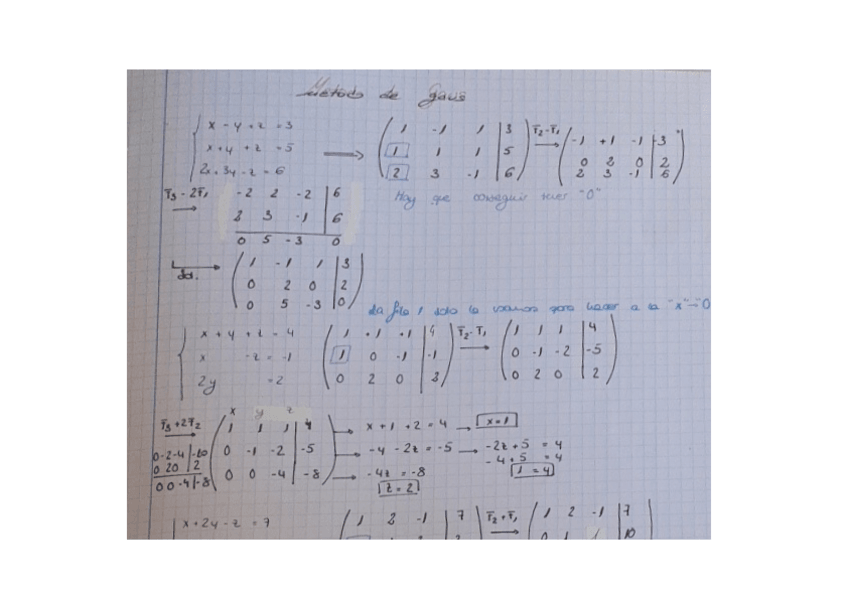 Método de Gaus
x - y + z = 3
x + y + z = 5
2x + 3y - z = 6
1 -1 1 | 3
1 1 1 | 5
2 3 -1 | 6
F2-F1
-1 +1 -1 | -3
0 2 0 | 2
2 3 -1 | 6
F3 - 2F1
-2 2 -2 | 6
2 3 -1 | 6
0 5 -3 | 0
Hay que conseguir tener "0"
1 -1 1 | 3
0 2 0 | 2
0 5 -3 | 0
La fila 1 solo la usamos para hacer a la "x" = 0
x + y + z = 4
x - z = -1
2y = 2
1 +1 +1 | 4
1 0 -1 | -1
0 2 0 | 2
F2-F1
1 1 1 | 4
0 -1 -2 | -5
0 2 0 | 2
F3+2F2
0 -2 -4 | -10
0 2 0 | 2
0 0 -4 | -8
x y z
1 1 1 | 4
0 -1 -2 | -5
0 0 -4 | -8
x + 1 + 2 = 4 → x = 1
-y - 2z = -5 → -2z + 5 = y
-4 + 5 = y
1 = y
-4z = -8
z = 2
x + 2y - z = 7
1 2 -1 | 7
F2+F1
1 2 -1 | 7
0 1 | 10